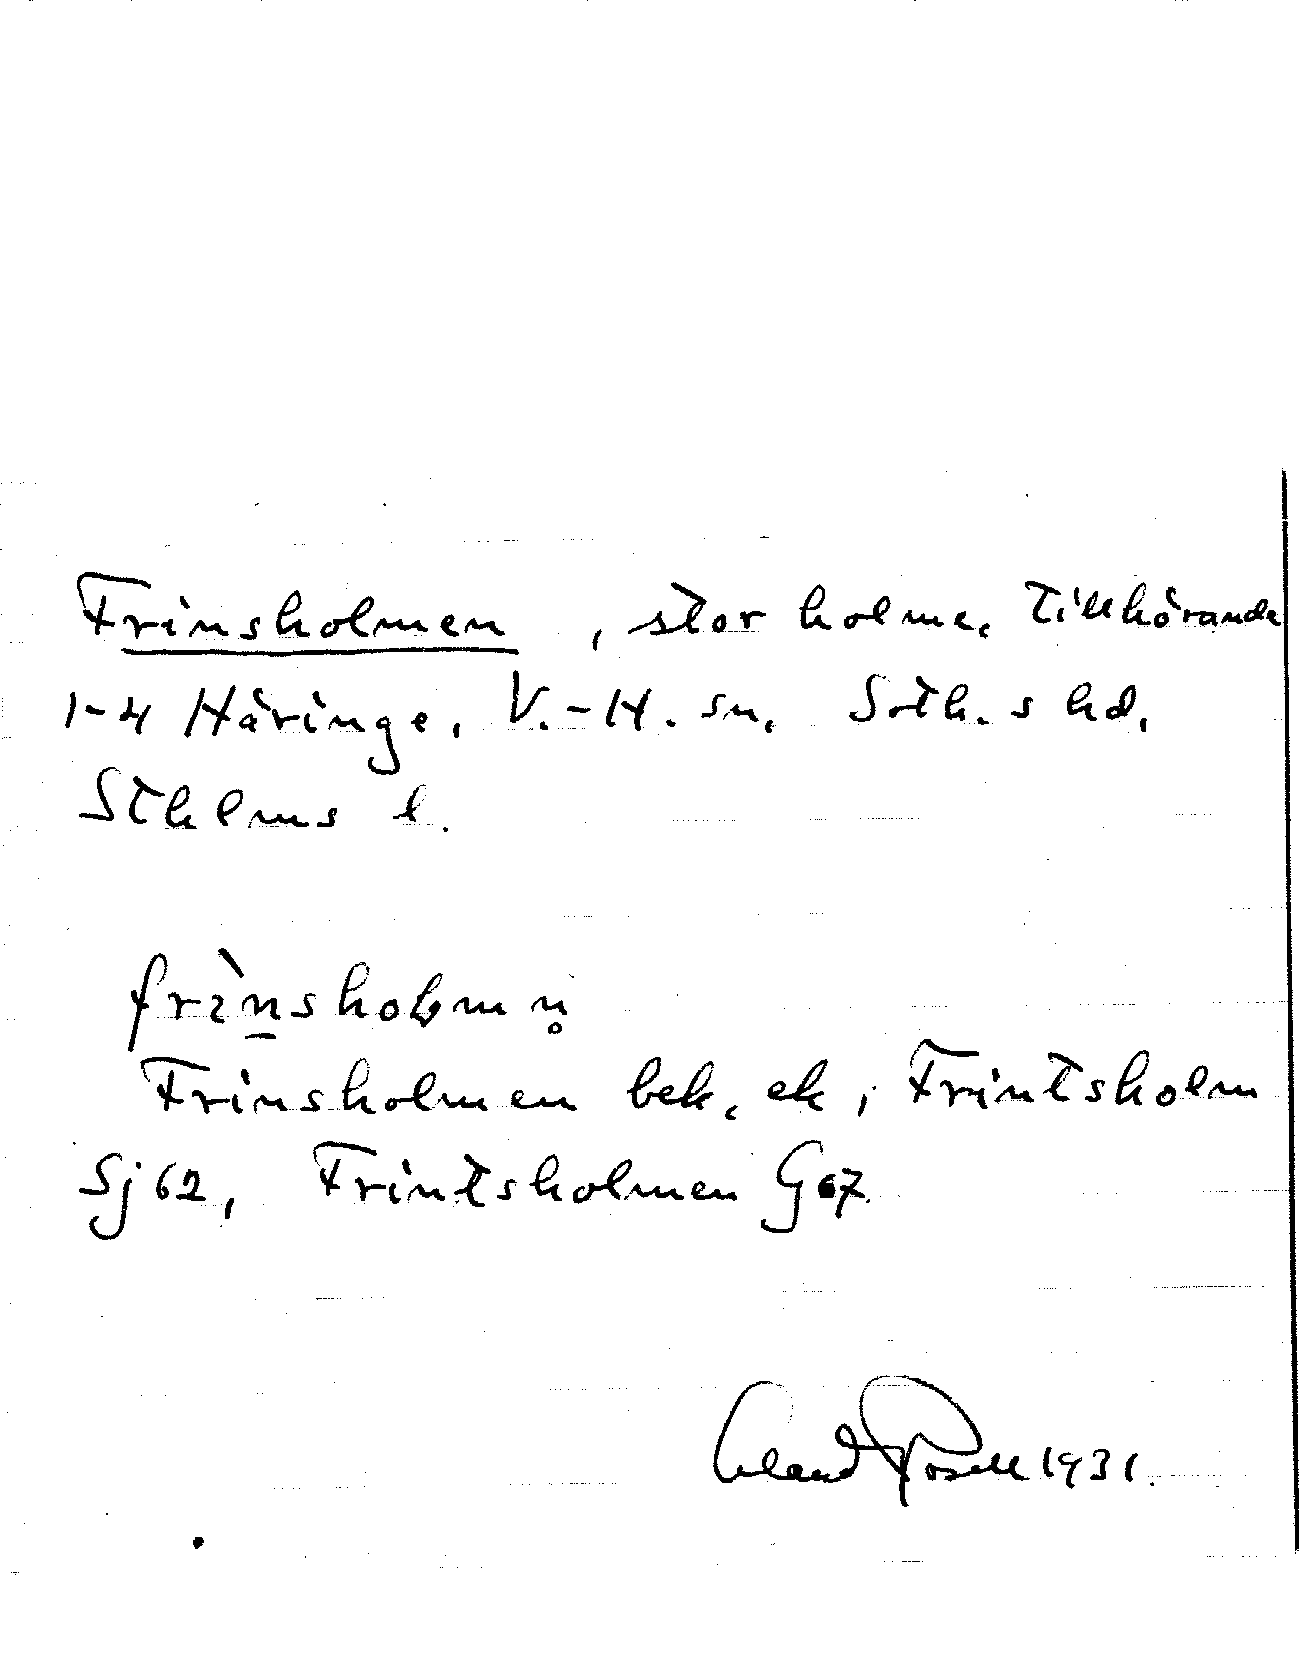 Frinsholmen, stor holme, tillhörande
1-4 Häringe, V.-H. sn, Soth.s hd,
Sthlms l.
frìn̲sholmn̥
Frinsholmen bek, ek; Frintsholm
Sj 62, Frintsholmen G 67.
Erland Rosell 1931.